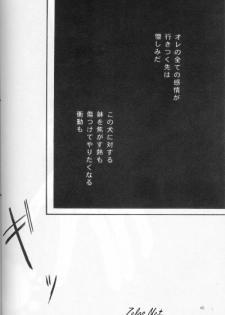 オレの全ての感情が
行きつく先は
憎しみだ
この犬に対する
身を焦がす熱も
傷つけてやりたくなる
衝動も
ギッ
Zelos Net